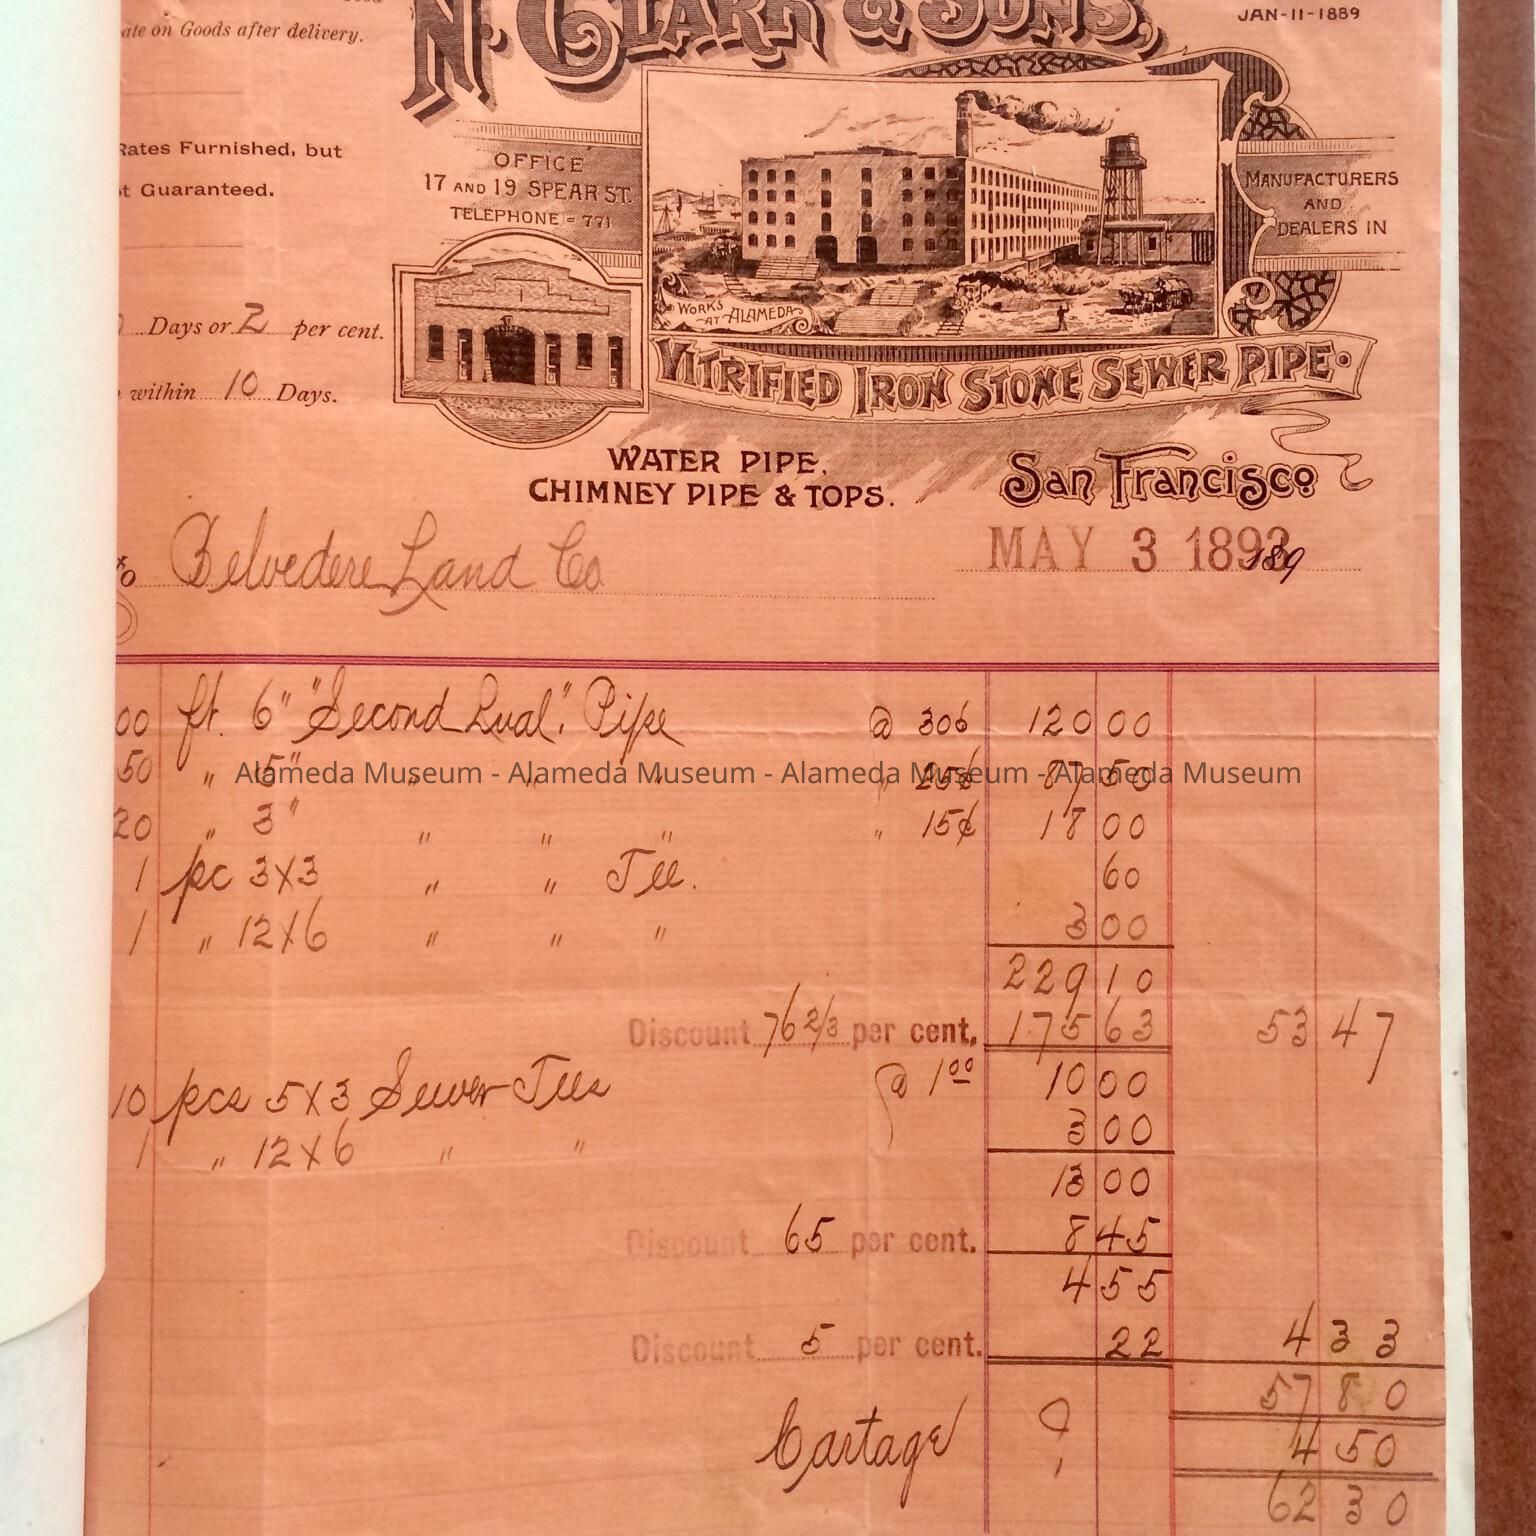 ate on Goods after delivery.
N. CLARK & SONS,
JAN-11-1889
Rates Furnished, but
t Guaranteed.
OFFICE
17 AND 19 SPEAR ST.
TELEPHONE = 771
MANUFACTURERS
AND
DEALERS IN
WORKS
AT ALAMEDA
Days or 2 per cent.
within 10 Days.
VITRIFIED IRON STONE SEWER PIPE
WATER PIPE,
CHIMNEY PIPE & TOPS.
San Francisco
MAY 3 1893 189
to Belvedere Land Co
00 ft. 6" "Second Qual." Pipe @ 30¢ 120 00
50 " 5" " " " " 25¢ 87 50
Alameda Museum - Alameda Museum - Alameda Museum - Alameda Museum
20 " 3" " " " " 15¢ 18 00
1 pc 3X3 " " Tee. 60
1 " 12X6 " " " 3 00
229 10
Discount 76 2/3 per cent. 175 63 53 47
10 pcs 5X3 Sewer Tees @ 1 00 10 00
1 " 12X6 " " 3 00
13 00
Discount 65 per cent. 8 45
4 55
Discount 5 per cent. 22 4 33
57 80
Cartage 4 50
62 30